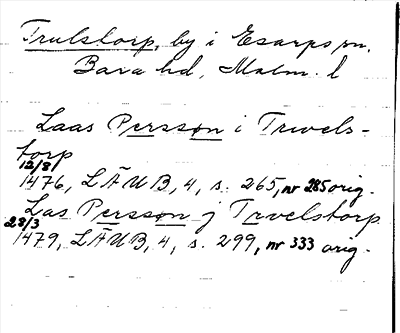 Trulstorp, by i Esarps sn.
Bara hd, Malm. l
Laas Persson i Trwels-
torp
12/8
1476, LÄUB, 4, s. 265, nr 285 orig.
Las Persson j Trvelstorp
28/3
1479, LÄUB, 4, s. 299, nr 333 orig.